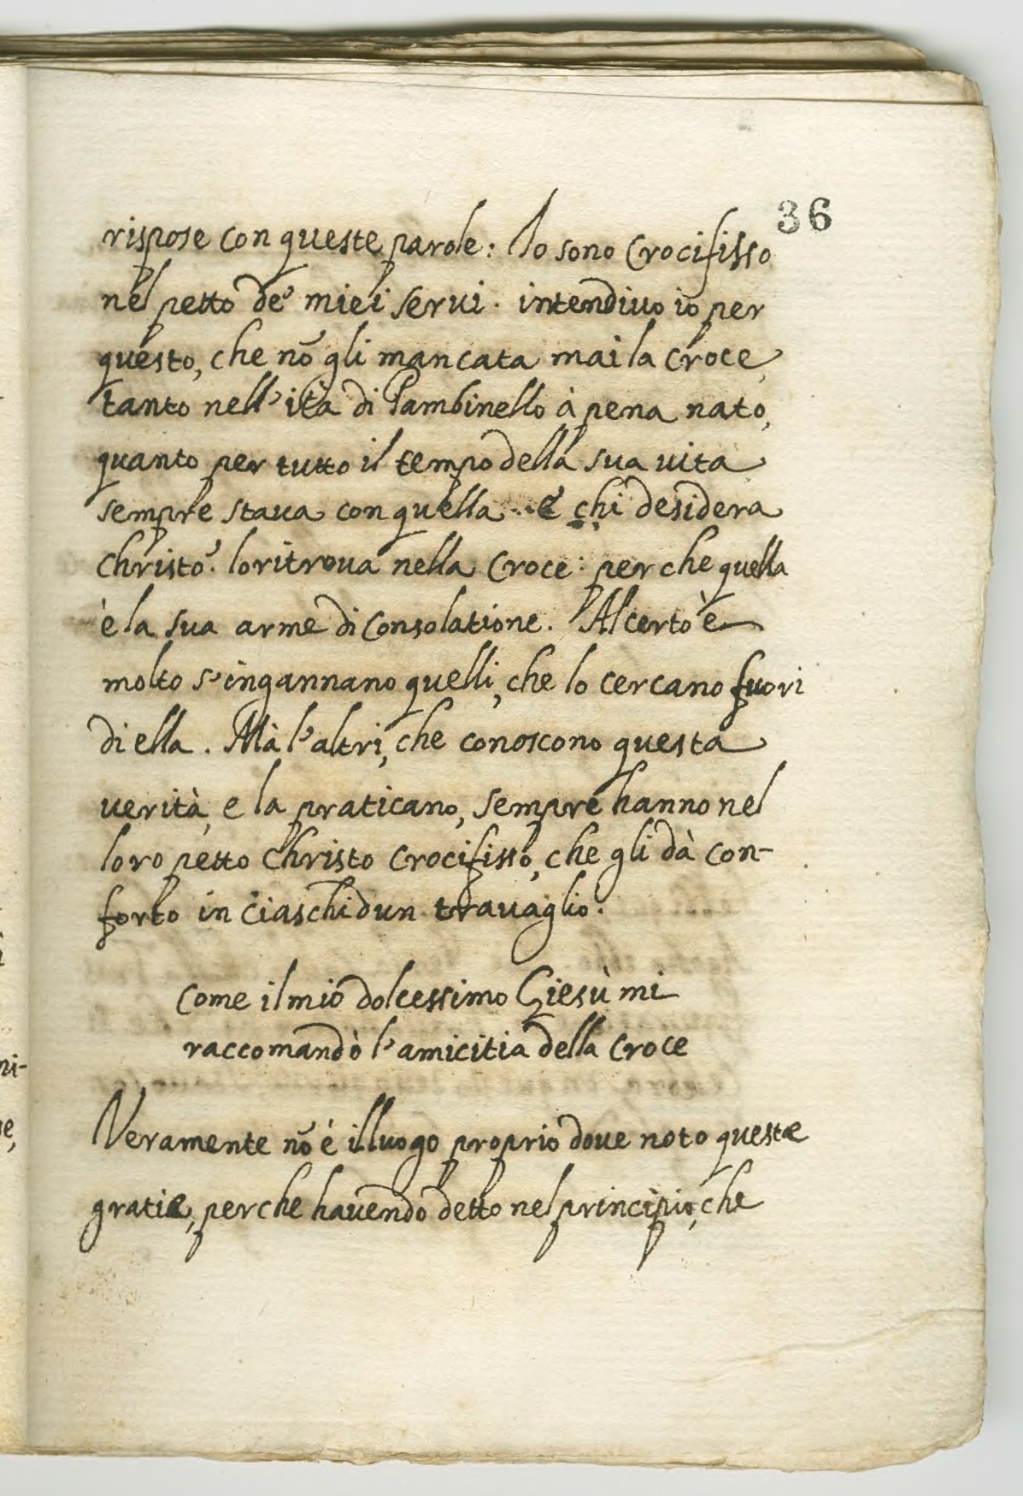 36
rispose con queste parole: Io sono Crocifisso
nel petto de' miei servi. intendivo io per
questo, che nõ gli mancata mai la Croce,
tanto nell'ità di Bambinello à pena nato,
quanto per tutto il tempo della sua vita
sempre stava con quella... e chi desidera
Christo. lo ritrova nella Croce: perche quella
è la sua arme di Consolatione. Al certo è
molto s'ingannano quelli, che lo cercano fuori
di ella. Mà l'altri, che conoscono questa
uerità, e la praticano, sempre hanno nel
loro petto Christo Crocifisso, che gli dà con-
forto in ciaschidun travaglio.
Come il mio dolcessimo Giesù mi
raccomandò l'amicitia della Croce
Veramente nõ è il luogo proprio dove noto queste
gratie, perche havendo detto nel principio, che